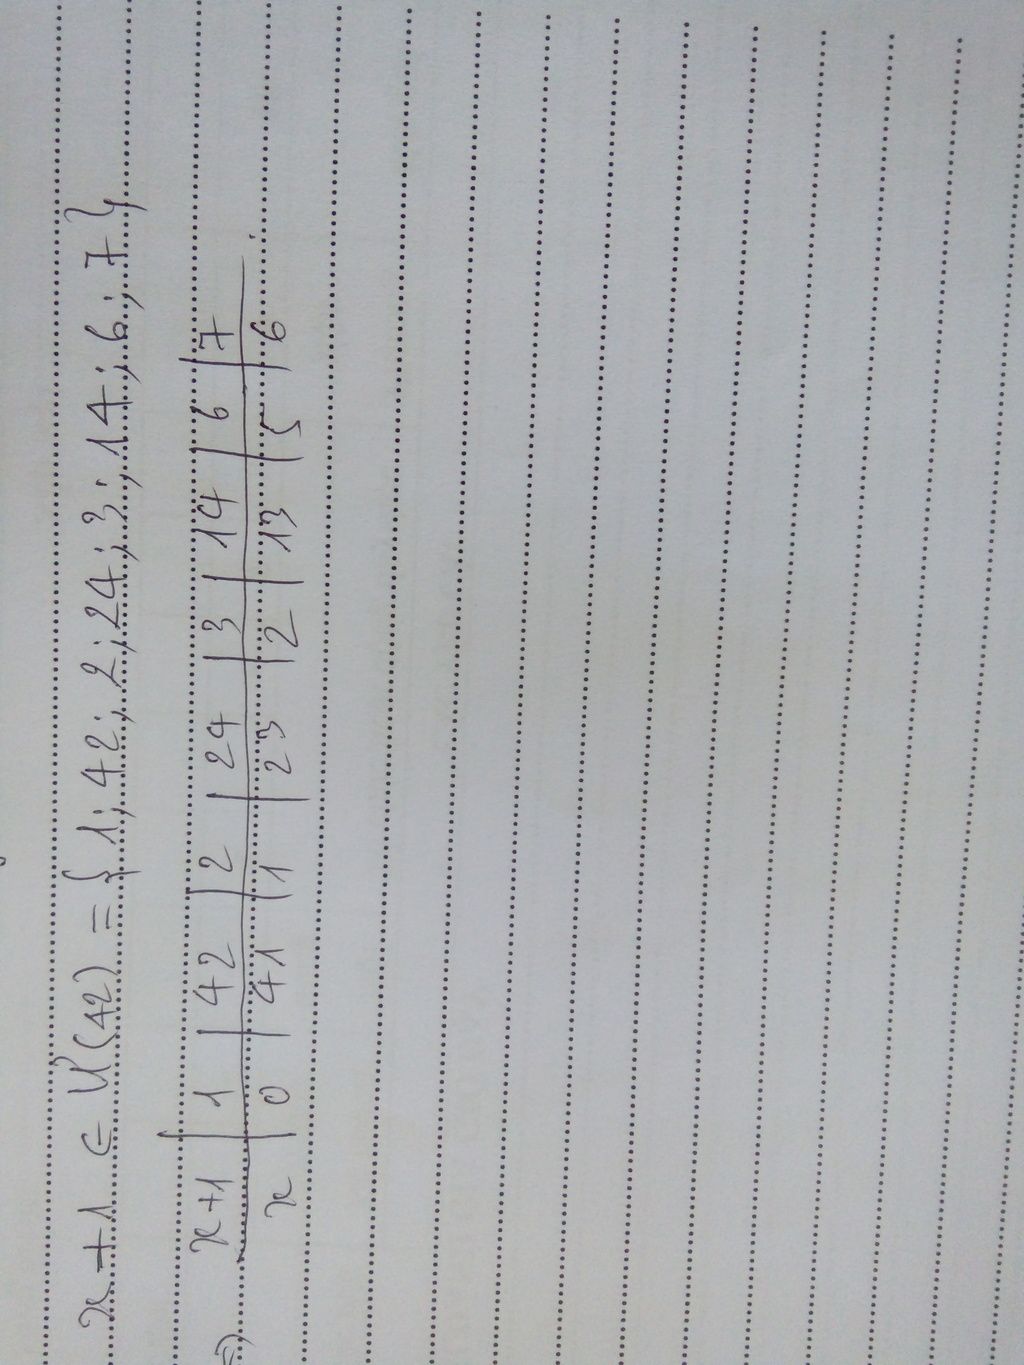 x + 1 ∈ Ư(42) = { 1 ; 42 ; 2 ; 24 ; 3 ; 14 ; 6 ; 7 }
⇒ x+1 | 1 | 42 | 2 | 24 | 3 | 14 | 6 | 7
x | 0 | 41 | 1 | 23 | 2 | 13 | 5 | 6